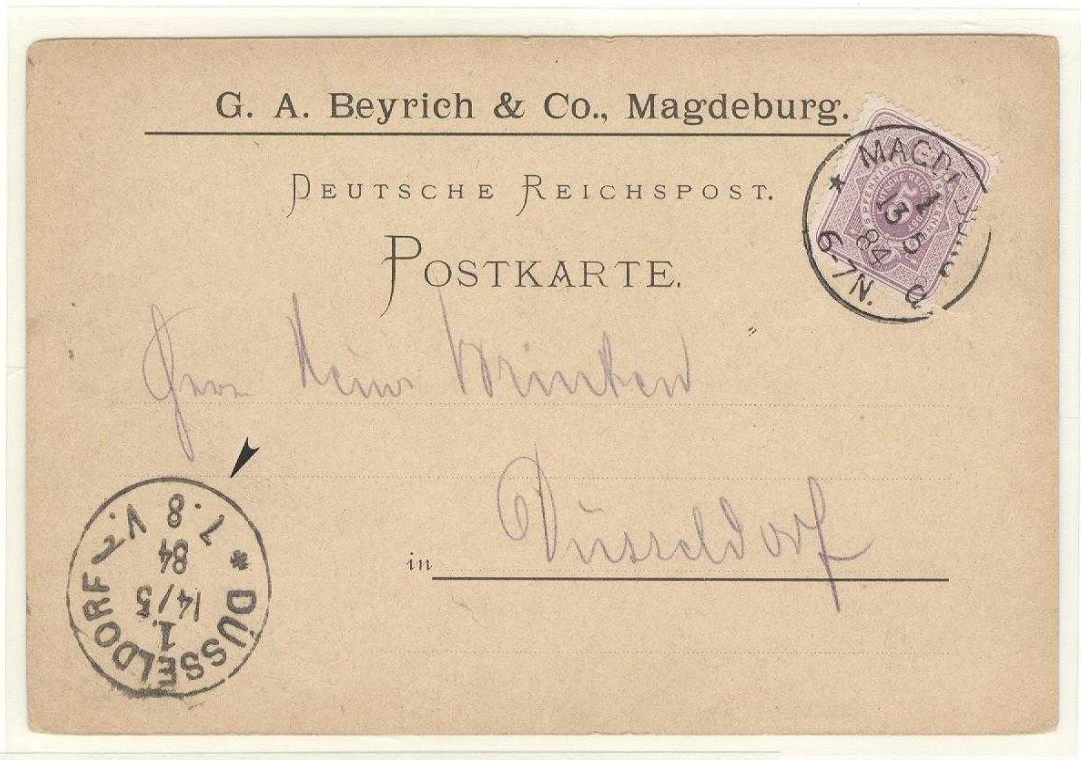 G. A. Beyrich & Co., Magdeburg.
DEUTSCHE REICHSPOST.
POSTKARTE.
MAGDEBURG
1
13 5
84
6-7N.
5
Herrn Heinr Brincken
in Düsseldorf
* DÜSSELDORF 2
1.
14/5
84
7.8 V.